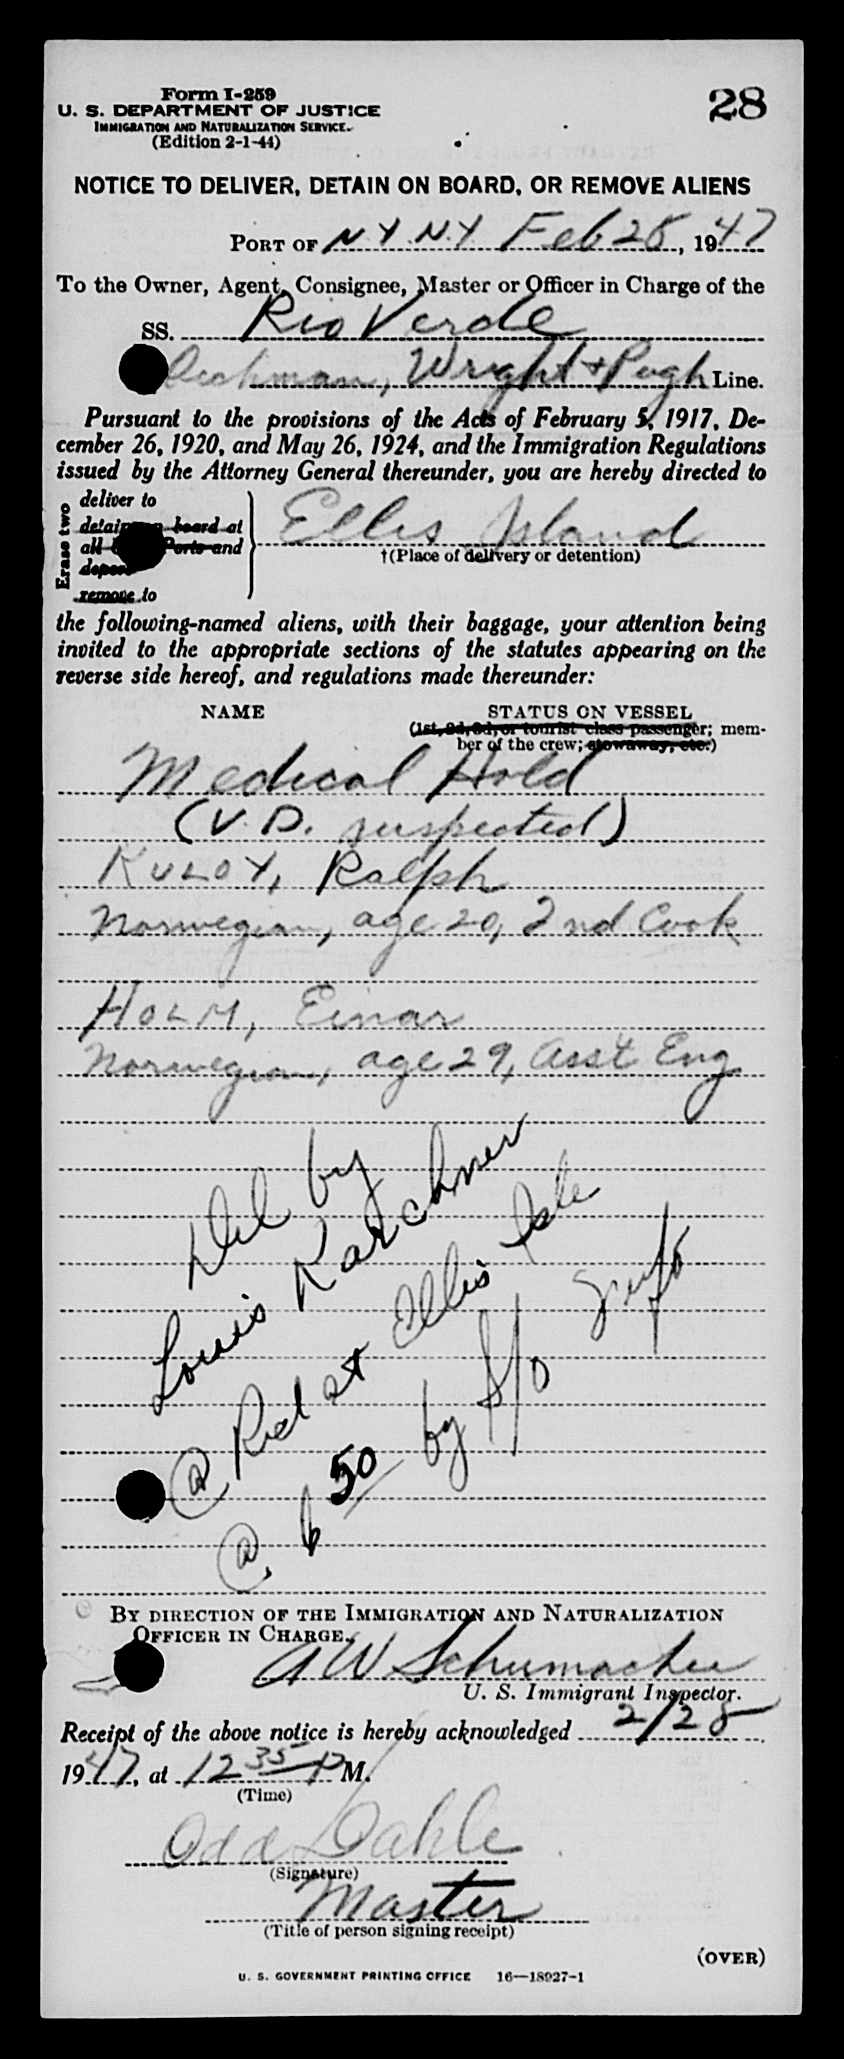 Form I-259
28
U. S. DEPARTMENT OF JUSTICE
IMMIGRATION AND NATURALIZATION SERVICE
(Edition 2-1-44)
NOTICE TO DELIVER, DETAIN ON BOARD, OR REMOVE ALIENS
PORT OF N.Y. N.Y. Feb 28, 1947
To the Owner, Agent, Consignee, Master or Officer in Charge of the
SS. Rio Verde
Wright + Pugh Line.
Pursuant to the provisions of the Acts of February 5, 1917, De-
cember 26, 1920, and May 26, 1924, and the Immigration Regulations
issued by the Attorney General thereunder, you are hereby directed to
Erase two
deliver to
detain on board at
all Ports and
remove to
Ellis Island
†(Place of delivery or detention)
the following-named aliens, with their baggage, your attention being
invited to the appropriate sections of the statutes appearing on the
reverse side hereof, and regulations made thereunder:
NAME
STATUS ON VESSEL
(1st, 2d, 3d, or tourist class passenger; mem-
ber of the crew; stowaway, etc.)
Medical Hold
(V.D. suspected)
Ralph
Norwegian, age 20, 2nd Cook
HOLM, Einar
Norwegian, age 29, Asst Eng
Del by
Louis Karchmer
@ Rcd at Ellis Isle
@ 6 50 by S/O
BY DIRECTION OF THE IMMIGRATION AND NATURALIZATION
OFFICER IN CHARGE.
A W Schumacher
U. S. Immigrant Inspector.
Receipt of the above notice is hereby acknowledged 2/28
1947, at 12 35 P M.
(Time)
Odd Dahle
(Signature)
Master
(Title of person signing receipt)
(OVER)
U. S. GOVERNMENT PRINTING OFFICE 16—18927-1